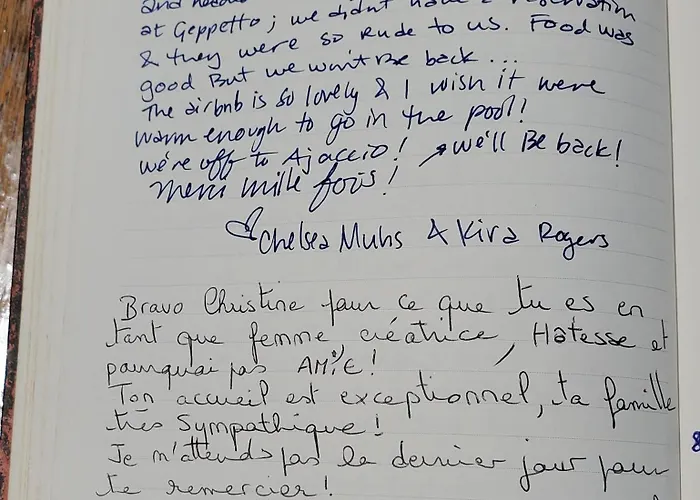 at Geppetto; we didn't have a reservation
& they were so Rude to us. Food was
good But we won't Be back ...
The airbnb is so lovely & I wish it were
warm enough to go in the pool!
we're off to Ajaccio! → we'll Be back!
Merci mille fois!
Chelsea Muhs & Kira Rogers
Bravo Christine pour ce que tu es en
tant que femme, créatrice, Hôtesse et
pourquoi pas AMIE!
Ton accueil est exceptionnel, ta famille
très Sympathique!
Je m'attends pas le dernier jour pour
te remercier!
8